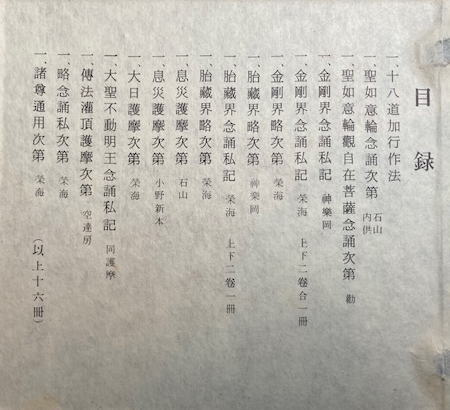 目録
一、十八道加行作法
一、聖如意輪念誦次第 石山内供
一、聖如意輪觀自在菩薩念誦次第 勸
一、金剛界念誦私記 神樂岡
一、金剛界念誦私記 栄海 上下二卷合一冊
一、金剛界略次第 栄海
一、胎藏界略次第 神樂岡
一、胎藏界念誦私記 栄海 上下二卷一冊
一、胎藏界略次第 栄海
一、息災護摩次第 石山
一、息災護摩次第 小野新本
一、大日護摩次第 栄海
一、大聖不動明王念誦私記 同護摩
一、傳法灌頂護摩次第 空達房
一、略念誦私次第 栄海
一、諸尊通用次第 栄海
(以上十六冊)